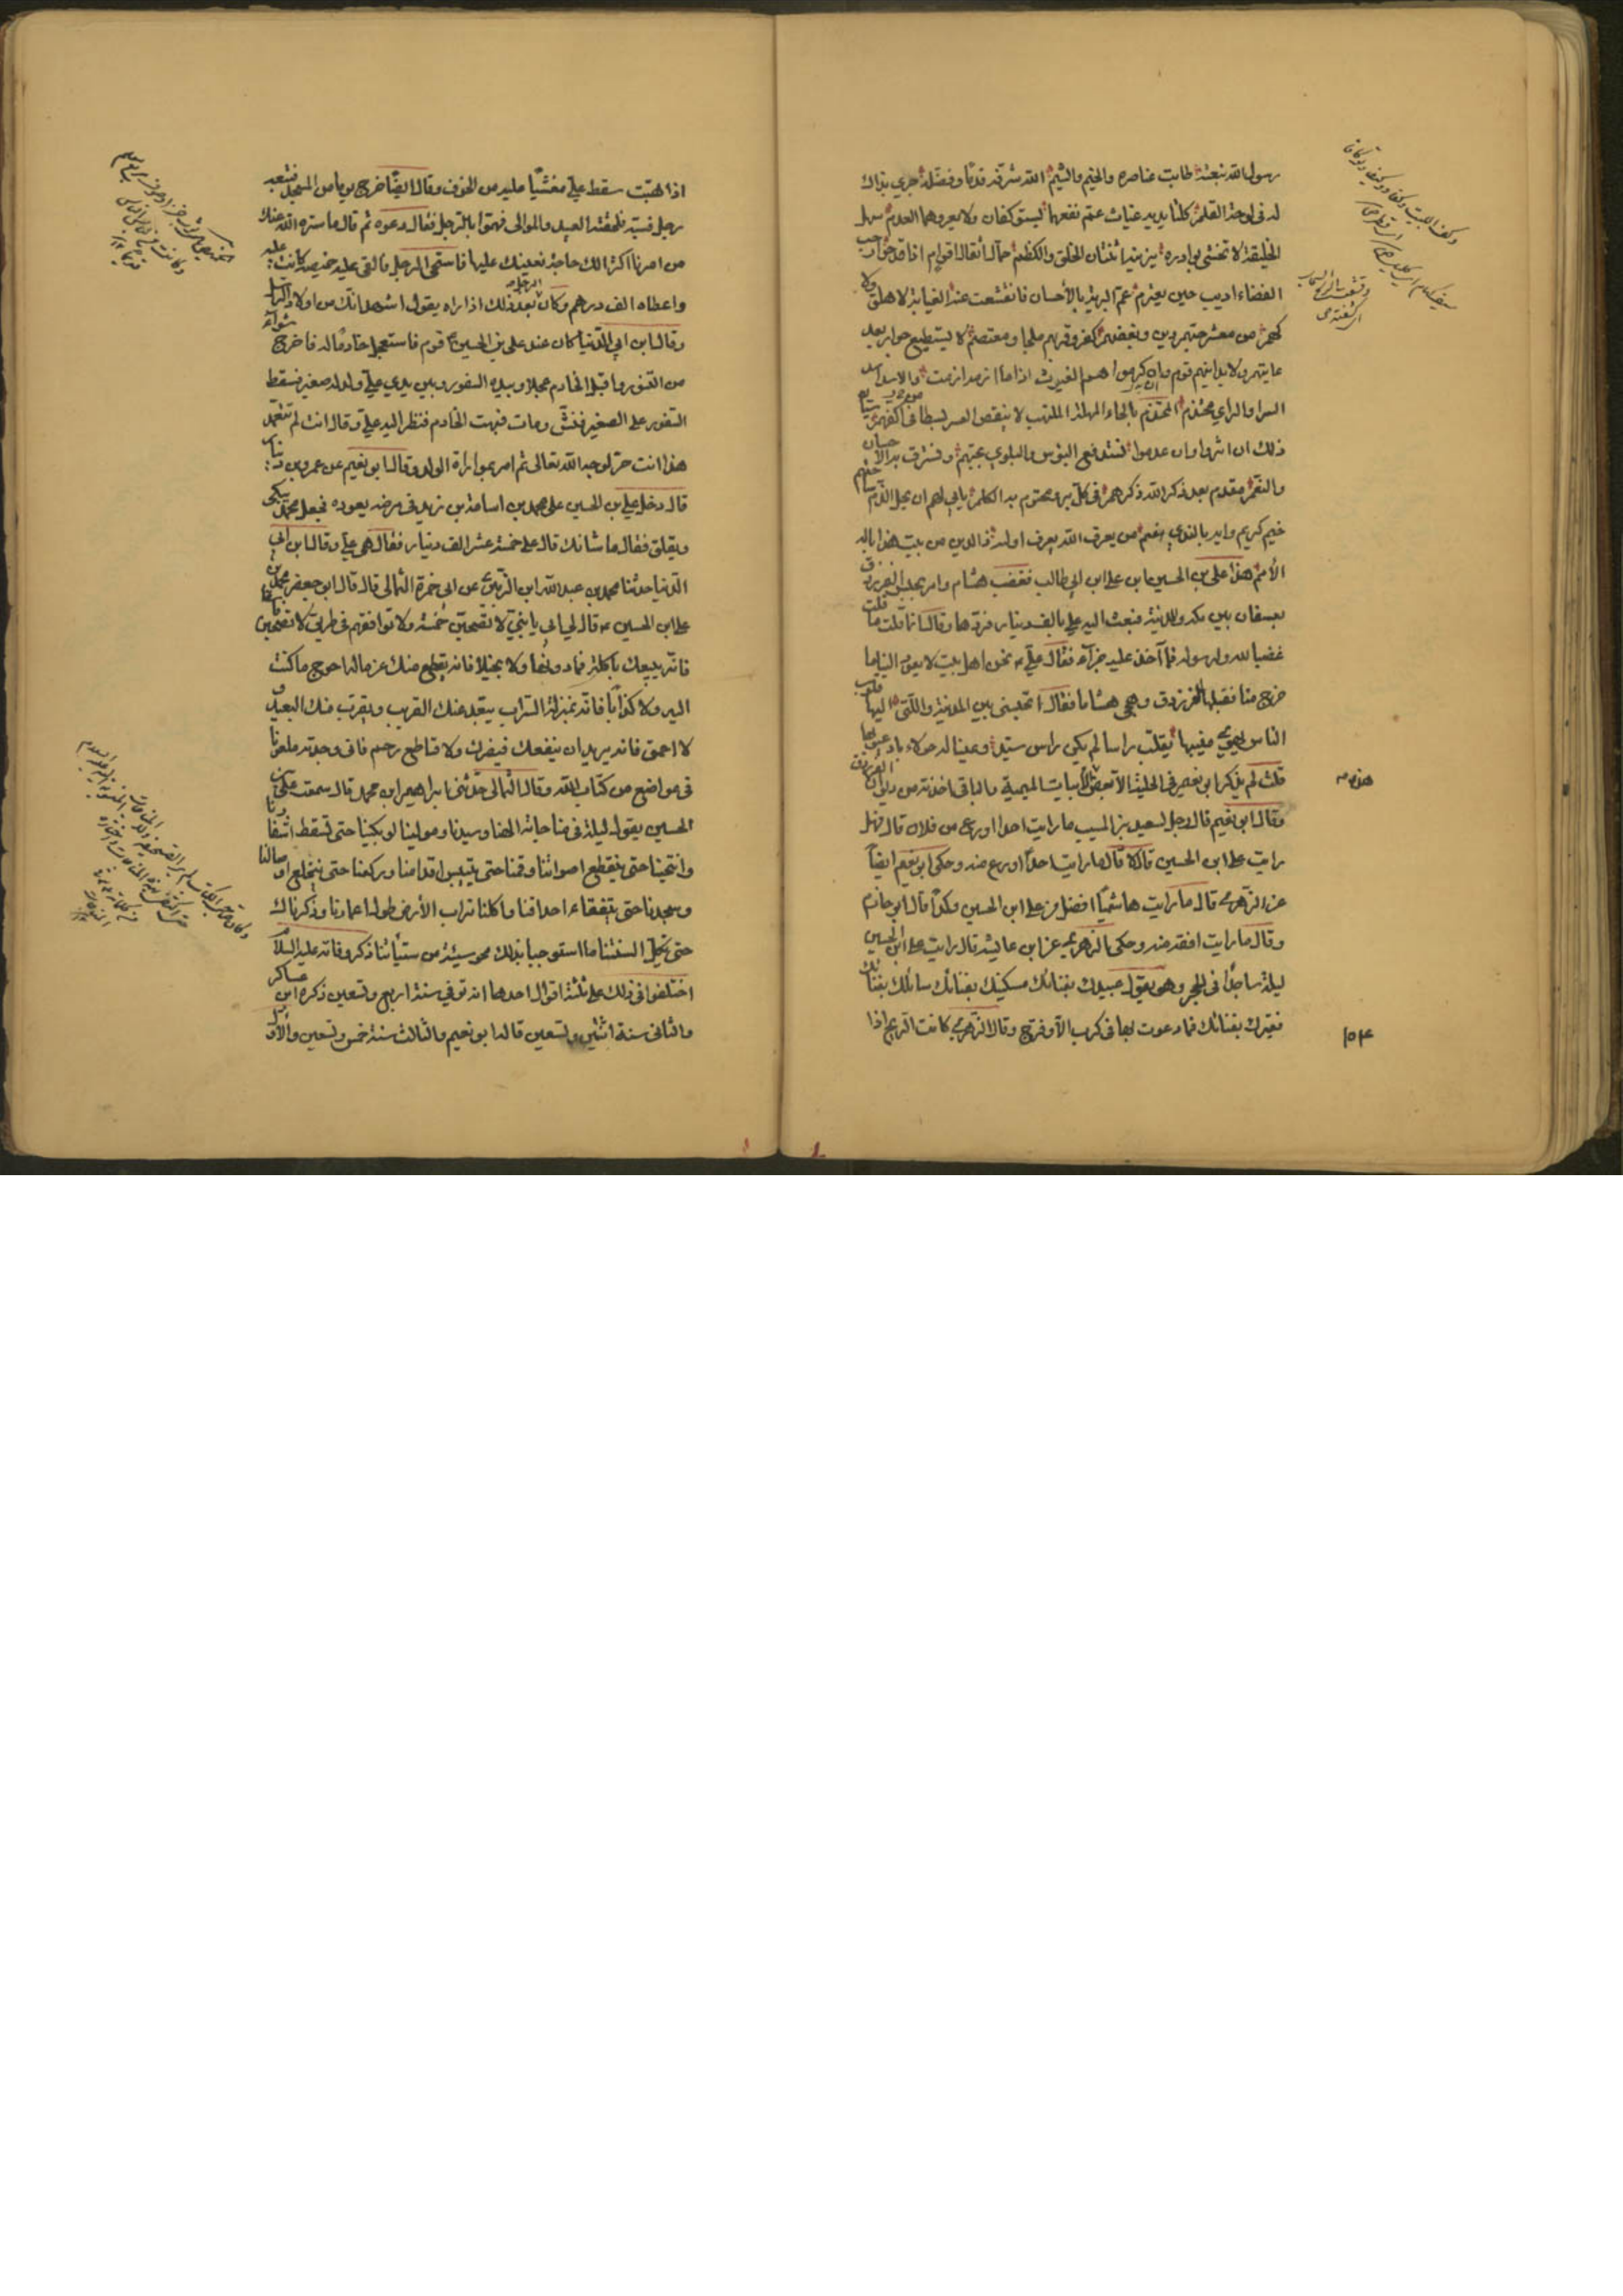 رسول الله نبعته طابت عناصره والخيم والشيم الله شرفه قدما وفضله جرى بذاك
له في لوحة القلم كلتا يديه غياث عم نفعهما يستوكفان ولا يعروهما العدم سهل
الخليقة لا تخشى بوادره يزينه اثنتان الخلق والكظم حمال أثقال اقوام اذا قدحوا رحب
الفناء اريب حين يعترم عم البرية بالأحسان فانقشعت عنه الغيابة لا هلق ولا
كهم من معشر حبهم دين وبغضهم كفر وقربهم ملجا ومعتصم لا يستطيع جواد بعد
غايتهم ولا يدانيهم قوم وان كرموا هم الغيوث اذا ما ازمة ازمت والاسد اسد
الشرا والراي محتدم المحتدم بالحاء المهملة الملتهب لا ينقص العسر بسطا من اكفهم سيان
ذلك ان اثروا وان عدموا يستدفع البؤس والبلوى بحبهم ويسترق به الاحسان
والنعم مقدم بعد ذكر الله ذكرهم في كل بر ومختوم به الكلم يابى لهم ان يحل الذم ساحتهم
خيم كريم وايد بالندى هضم من يعرف الله يعرف اولية ذا الدين من بيت هذا ناله
الأمم هذا علي بن الحسين ابن علي ابن ابي طالب فغضب هشام وامر بحبس الفرزدق
بعسفان بين مكة والمدينة فبعث اليه علي بالف دينار فردها وقال انا قلت ما قلت
غضبا لله ولرسوله فما آخذ عليه جزاء فقال علي نحن اهل بيت لا يعود الينا ما
خرج منا فقبلها الفرزدق وهجى هشاما فقال اتحبسني بين المدينة والتي اليها قلوب
الناس يهوي منيبها يقلب راسا لم يكن راس سيد وعينا له حولاء باد عيوبها
قلت لم يذكر ابو نعيم في الحلية الا بعض الأبيات الميمية والباقي اخذته من ديوان الفرزدق
وقال ابو نعيم قال رجل لسعيد بن المسيب ما رايت احدا اورع من فلان قال فهل
رايت علي ابن الحسين قال لا قال ما رايت احدا اورع منه وحكى ابو نعيم ايضا
عن الزهري قال ما رايت هاشميا افضل من علي ابن الحسين وكذا قال ابو حازم
وقال ما رايت افقه منه وحكى الزهري عن ابن عايشة قال رايت علي ابن الحسين
ليلة ساجدا في الحجر وهو يقول عبيدك بفنائك مسكينك بفنائك سائلك بفنائك
فقيرك بفنائك فما دعوت بها في كرب الا وفرج وقال الزهري كانت الريح اذا
١٥٤
اذا هبت سقط علي مغشيا عليه من الخوف وقال ايضا خرج يوما من المسجد فتبعه
رجل فسبه فلحقته العبيد والموالي فهموا بالرجل فقال دعوه ثم قال ما ستره الله عنك
من امرنا اكثر الك حاجة نعينك عليها فاستحى الرجل فالقى عليه خميصة كانت عليه
واعطاه الف درهم وكان الرجل بعد ذلك اذا راه يقول اشهد انك من اولاد الرسل
وقال ابن ابي الدنيا كان عند علي بن الحسين قوم فاستعجل خادما له فاخرج شواء
من التنور واقبل الخادم عجلا وبيده السفود وبين يدي علي ولد له صغير فسقط
السفود على الصغير فنش ومات فبهت الخادم فنظر اليه علي وقال انت لم تتعمد
هذا انت حر لوجه الله تعالى ثم امر بمواراة الولد وقال ابو نعيم عن عمرو بن دينار
قال دخل علي بن الحسين على محمد بن اسامة بن زيد في مرضه يعوده فجعل محمد يبكي
ويقلق فقال ما شانك قال علي خمسة عشر الف دينار فقال هي علي وقال ابن ابي
الدنيا حدثنا محمد بن عبد الله ابن الزبيري عن ابي حمزة الثمالي قال قال ابو جعفر محمد بن
علي ابن الحسين قال لي ابي يا بني لا تصحبن خمسة ولا توافقهم في طريق لا تصحبن فاسقا
فانه يبيعك باكلة فما دونها ولا بخيلا فانه يقطع منك عن ماله احوج ما كنت
اليه ولا كذابا فانه بمنزلة السراب يبعد عنك القريب ويقرب منك البعيد و
لا احمق فانه يريد ان ينفعك فيضرك ولا قاطع رحم فاني وجدته ملعونا
في مواضع من كتاب الله وقال الثمالي حدثني ابراهيم ابن محمد قال سمعت علي بن
الحسين يقول ليلة في مناجاته الهنا وسيدنا ومولينا لو بكينا حتى تسقط اشفارنا
وانتحبنا حتى ينقطع اصواتنا وقمنا حتى تيبس اقدامنا وركعنا حتى ينخلع اوصالنا
وسجدنا حتى يتفقاء احداقنا واكلنا تراب الأرض طول اعمارنا وذكرناك
حتى تكل السنتنا ما استوجبنا بذلك محو سيئة من سيئاتنا ذكر وفاته عليه السلام
اختلفوا في ذلك على ثلثة اقوال احدها انه توفي سنة اربع وتسعين ذكره ابن عساكر
والثاني سنة اثنين وتسعين قاله ابو نعيم والثالث سنة خمس وتسعين والأول